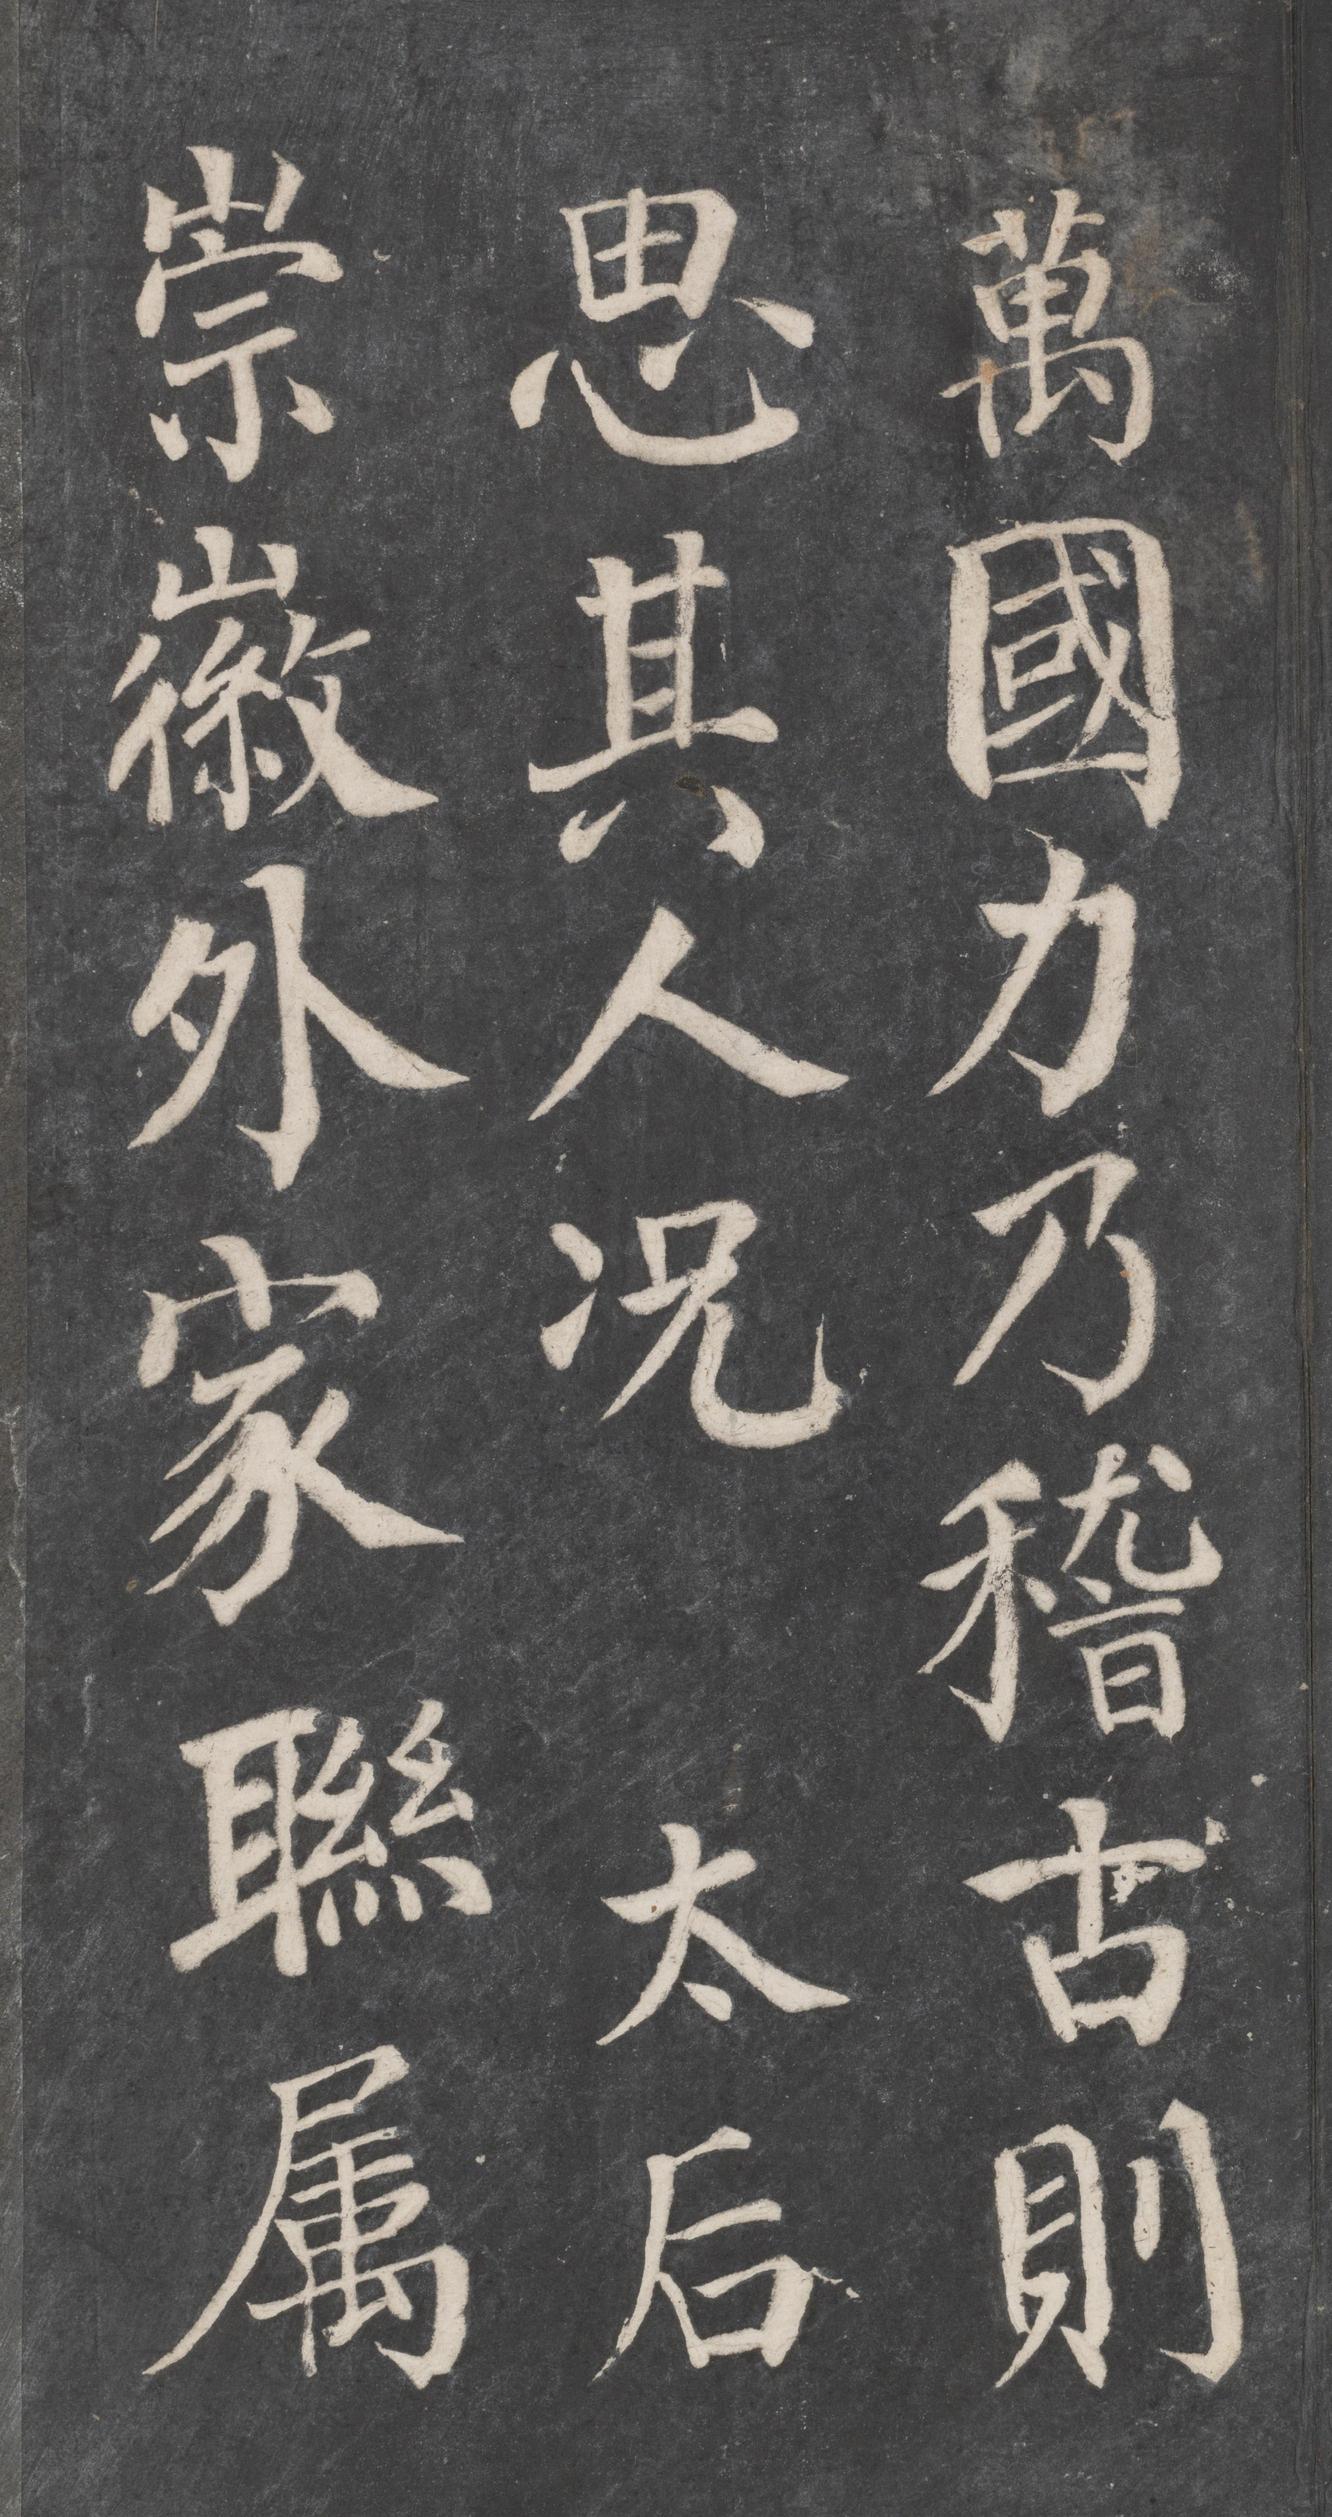 萬國力乃稽古則
思其人況太后
崇徽外家聯属